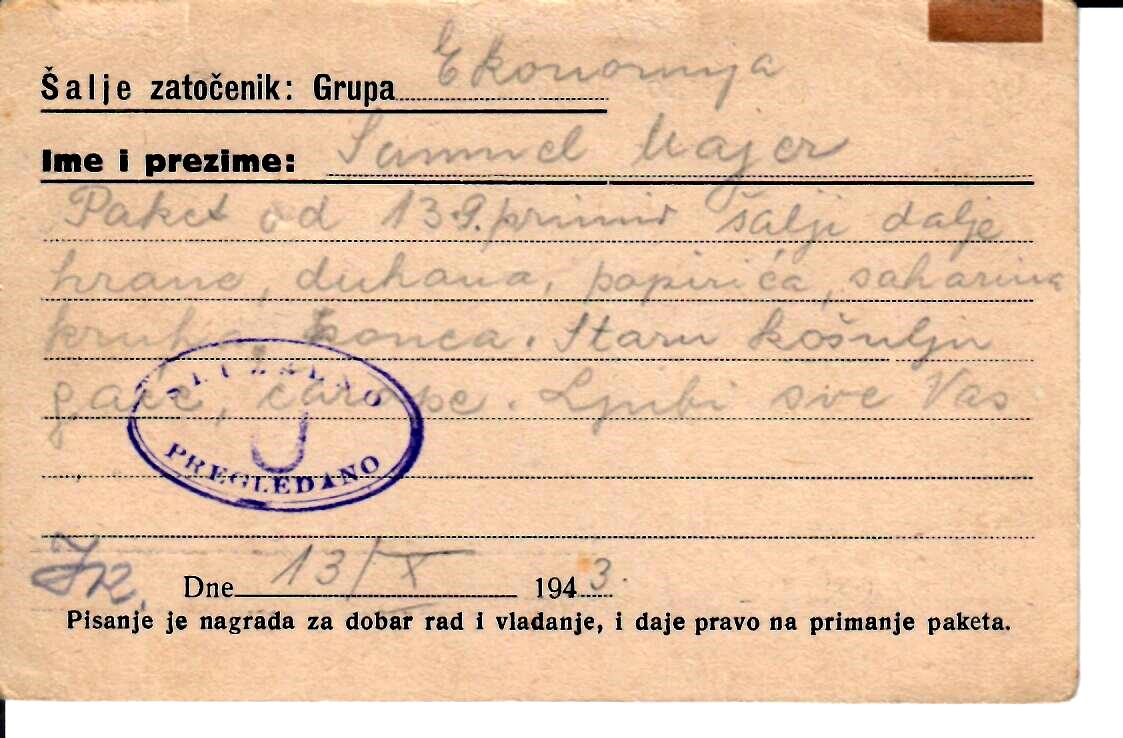 Šalje zatočenik: Grupa Ekonomija
Ime i prezime: Samuel Majer
Paket od 13.9. primio šalji dalje
hrane, duhana, papirića, saharina
kruha, konca. Staru košulju
gaće, čarape. Ljubi sve Vas
SLUŽBENO
U
PREGLEDANO
Dne 13/X 1943.
Pisanje je nagrada za dobar rad i vladanje, i daje pravo na primanje paketa.